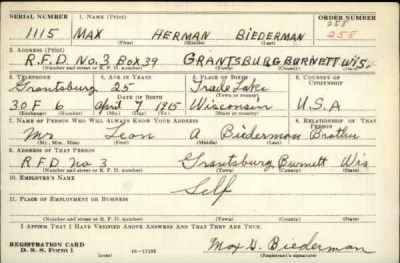 SERIAL NUMBER 1. NAME (Print) ORDER NUMBER
258
1115 MAX HERMAN BIEDERMAN 258
(First) (Middle) (Last)
2. ADDRESS (Print)
R.F.D. No. 3 Box 39 GRANTSBURG BURNETT Wis.
(Number and street or R. F. D. number) (Town) (County) (State)
3. TELEPHONE 4. AGE IN YEARS 5. PLACE OF BIRTH 6. COUNTRY OF CITIZENSHIP
Grantsburg 25 Trade Lake
DATE OF BIRTH (Town or county)
30 F 6 April 7 1915 Wisconsin U.S.A
(Exchange) (Number) (Mo.) (Day) (Yr.) (State or country)
7. NAME OF PERSON WHO WILL ALWAYS KNOW YOUR ADDRESS 8. RELATIONSHIP OF THAT PERSON
Mr. Leon A Biederman Brother
(Mr., Mrs., Miss) (First) (Middle) (Last)
9. ADDRESS OF THAT PERSON
R F D No. 3 Grantsburg Burnett Wis
(Number and street or R. F. D. number) (Town) (County) (State)
10. EMPLOYER'S NAME
Self
11. PLACE OF EMPLOYMENT OR BUSINESS
(Number and street or R. F. D. number) (Town) (County) (State)
I AFFIRM THAT I HAVE VERIFIED ABOVE ANSWERS AND THAT THEY ARE TRUE.
REGISTRATION CARD
D. S. S. Form 1 16—17105 Max H. Biederman
(Registrant's signature)